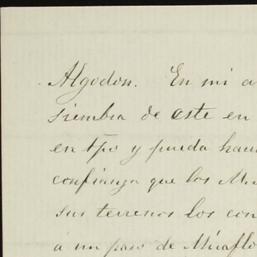 Algodon. En mi a
siembra de este en
en tpo y pueda hau
confianza que los Mu
sus terrenos los con
á un paso de Miraflo